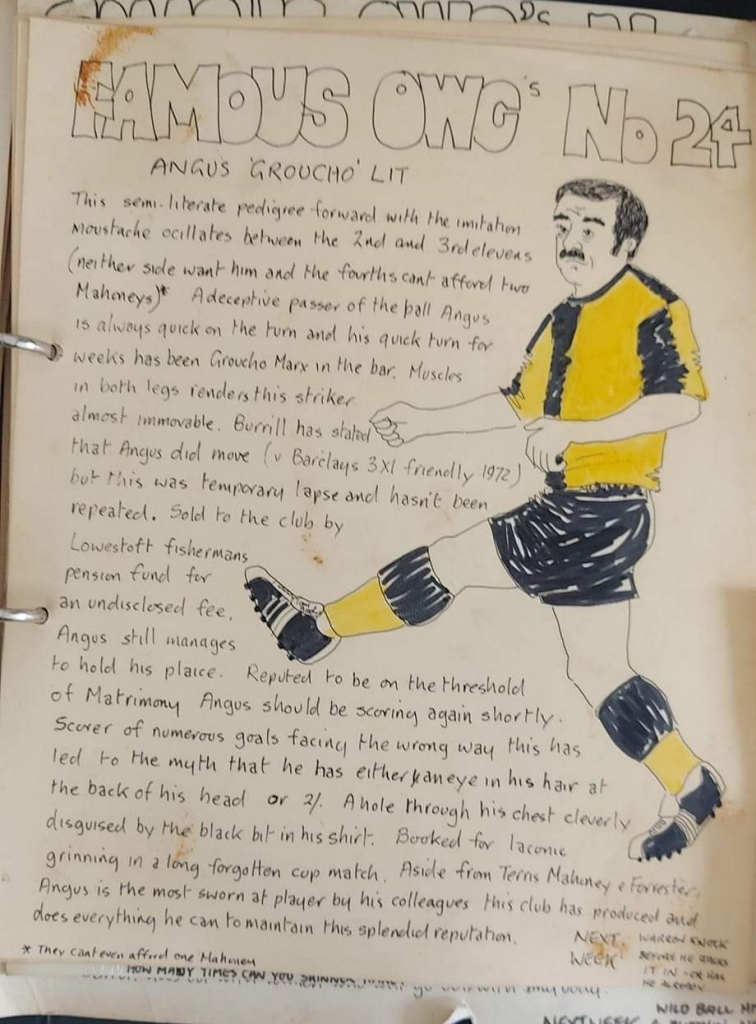 FAMOUS OWG's No 24
ANGUS 'GROUCHO' LIT
This semi-literate pedigree forward with the imitation
moustache ocillates between the 2nd and 3rd elevens
(neither side want him and the fourths cant afford two
Mahoneys)* A deceptive passer of the ball Angus
is always quick on the turn and his quick turn for
weeks has been Groucho Marx in the bar. Muscles
in both legs renders this striker
almost immovable. Burrill has stated
that Angus did move (v Barclays 3XI friendly 1972)
but this was temporary lapse and hasn't been
repeated. Sold to the club by
Lowestoft fishermans
pension fund for
an undisclosed fee.
Angus still manages
to hold his plaice. Reputed to be on the threshold
of Matrimony Angus should be scoring again shortly.
Scorer of numerous goals facing the wrong way this has
led to the myth that he has either an eye in his hair at
the back of his head or 2/. A hole through his chest cleverly
disguised by the black bit in his shirt. Booked for laconic
grinning in a long forgotten cup match. Aside from Terns Mahoney e Forrester.
Angus is the most sworn at player by his colleagues this club has produced and
does everything he can to maintain this splendid reputation.
* They cant even afford one Mahoney
NEXT WEEK
WARREN KNOCK
BEFORE HE
IT IN - OR HAS
HE ALREADY
HOW MANY TIMES CAN YOU
WILD BALL
NEXT WEEK